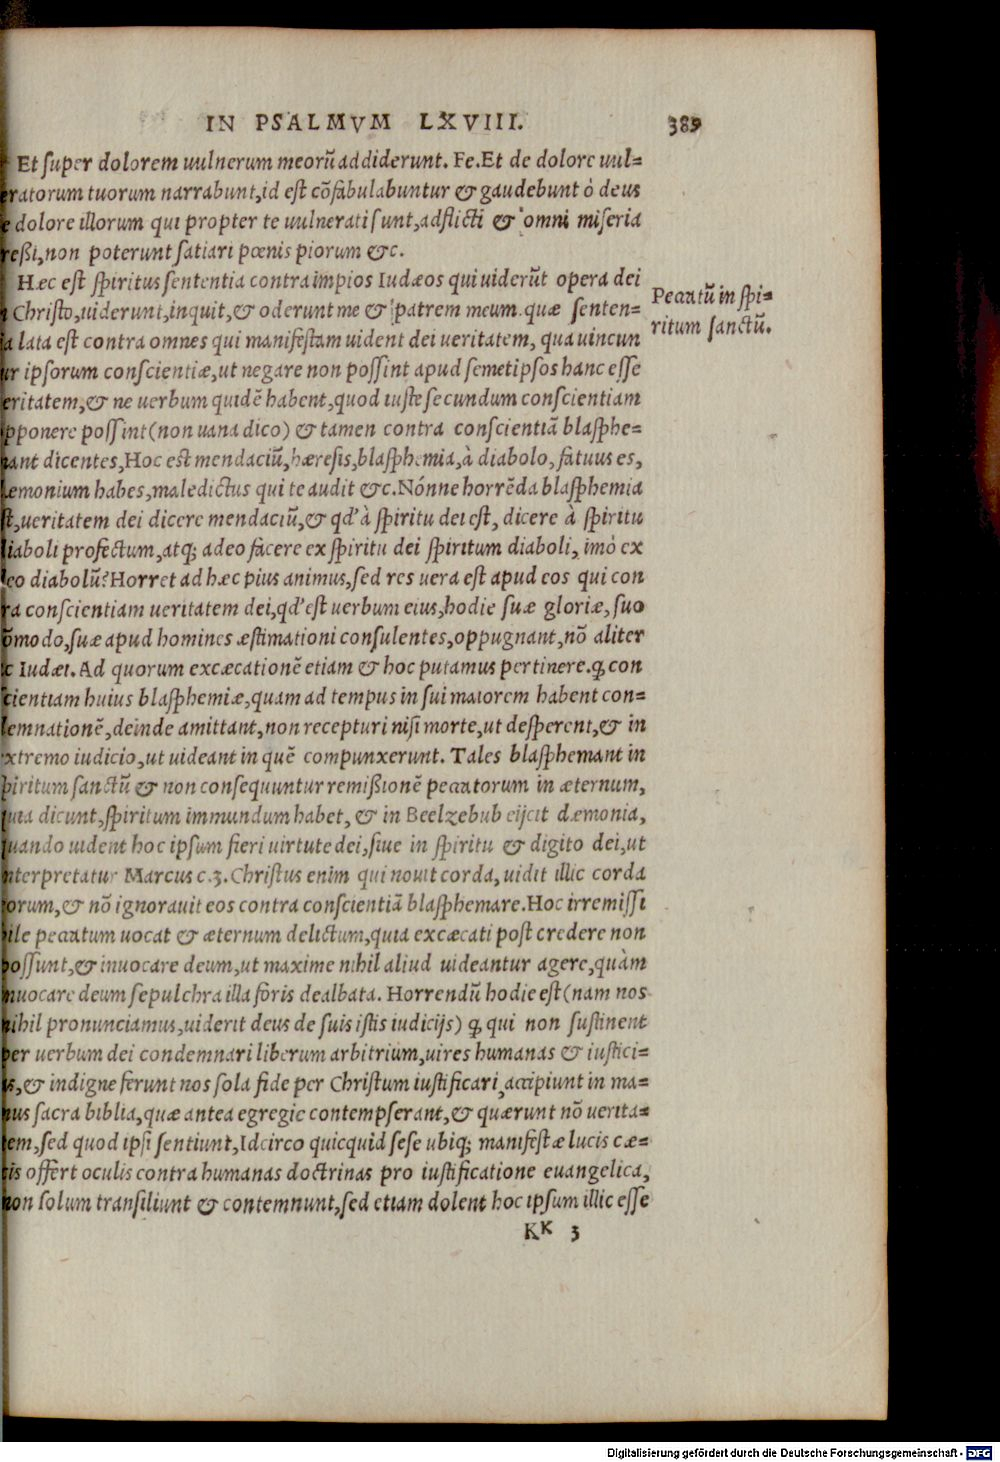 IN PSALMVM LXVIII. 389
Et super dolorem uulnerum meorũ addiderunt. Fe. Et de dolore uul=
eratorum tuorum narrabunt, id est cõfabulabuntur & gaudebunt ò deus
e dolore illorum qui propter te uulnerati sunt, adflicti & omni miseria
reßi, non poterunt satiari pœnis piorum &c.
Hæc est spiritus sententia contra impios Iudæos qui uiderũt opera dei
n Christo, uiderunt, inquit, & oderunt me & patrem meum. quæ senten=
Peccatũ in spi=
ritum sanctũ.
ia lata est contra omnes qui manifestam uident dei ueritatem, qua uincun
ur ipsorum conscientiæ, ut negare non possint apud semetipsos hanc esse
eritatem, & ne uerbum quidẽ habent, quod iuste secundum conscientiam
pponere possint (non uana dico) & tamen contra conscientiã blasphe=
nant dicentes, Hoc est mendaciũ, hæresis, blasphemia, à diabolo, fatuus es,
æmonium habes, maledictus qui te audit &c. Nónne horrẽda blasphemia
st, ueritatem dei dicere mendaciũ, & qd' à spiritu dei est, dicere à spiritu
liaboli profectum, atq; adeo facere ex spiritu dei spiritum diaboli, imò ex
leo diabolũ? Horret ad hæc pius animus, sed res uera est apud eos qui con
ra conscientiam ueritatem dei, qd' est uerbum eius, hodie suæ gloriæ, suo
õmodo, suæ apud homines æstimationi consulentes, oppugnant, nõ aliter
c Iudæi. Ad quorum excæcationẽ etiam & hoc putamus pertinere. q̃ con
cientiam huius blasphemiæ, quam ad tempus in sui maiorem habent con=
lemnationẽ, deinde amittant, non recepturi nisi morte, ut desperent, & in
xtremo iudicio, ut uideant in quẽ compunxerunt. Tales blasphemant in
piritum sanctũ & non consequuntur remißionẽ peccatorum in æternum,
quia dicunt, spiritum immundum habet, & in Beelzebub eijcit dæmonia,
quando uident hoc ipsum fieri uirtute dei, siue in spiritu & digito dei, ut
nterpretatur Marcus c.3. Christus enim qui nouit corda, uidit illic corda
orum, & nõ ignorauit eos contra conscientiã blasphemare. Hoc irremissi
bile peccatum uocat & æternum delictum, quia excæcati post credere non
possunt, & inuocare deum, ut maxime nihil aliud uideantur agere, quàm
nuocare deum sepulchra illa foris dealbata. Horrendũ hodie est (nam nos
nihil pronunciamus, uiderit deus de suis istis iudicijs) q̃ qui non sustinent
per uerbum dei condemnari liberum arbitrium, uires humanas & iustici=
as, & indigne ferunt nos sola fide per Christum iustificari, accipiunt in ma=
nus sacra biblia, quæ antea egregie contempserant, & quærunt nõ uerita=
tem, sed quod ipsi sentiunt, Idcirco quicquid sese ubiq; manifestæ lucis cæ=
cis offert oculis contra humanas doctrinas pro iustificatione euangelica,
non solum transiliunt & contemnunt, sed etiam dolent hoc ipsum illic esse
Kk 3
Digitalisierung gefördert durch die Deutsche Forschungsgemeinschaft - DFG